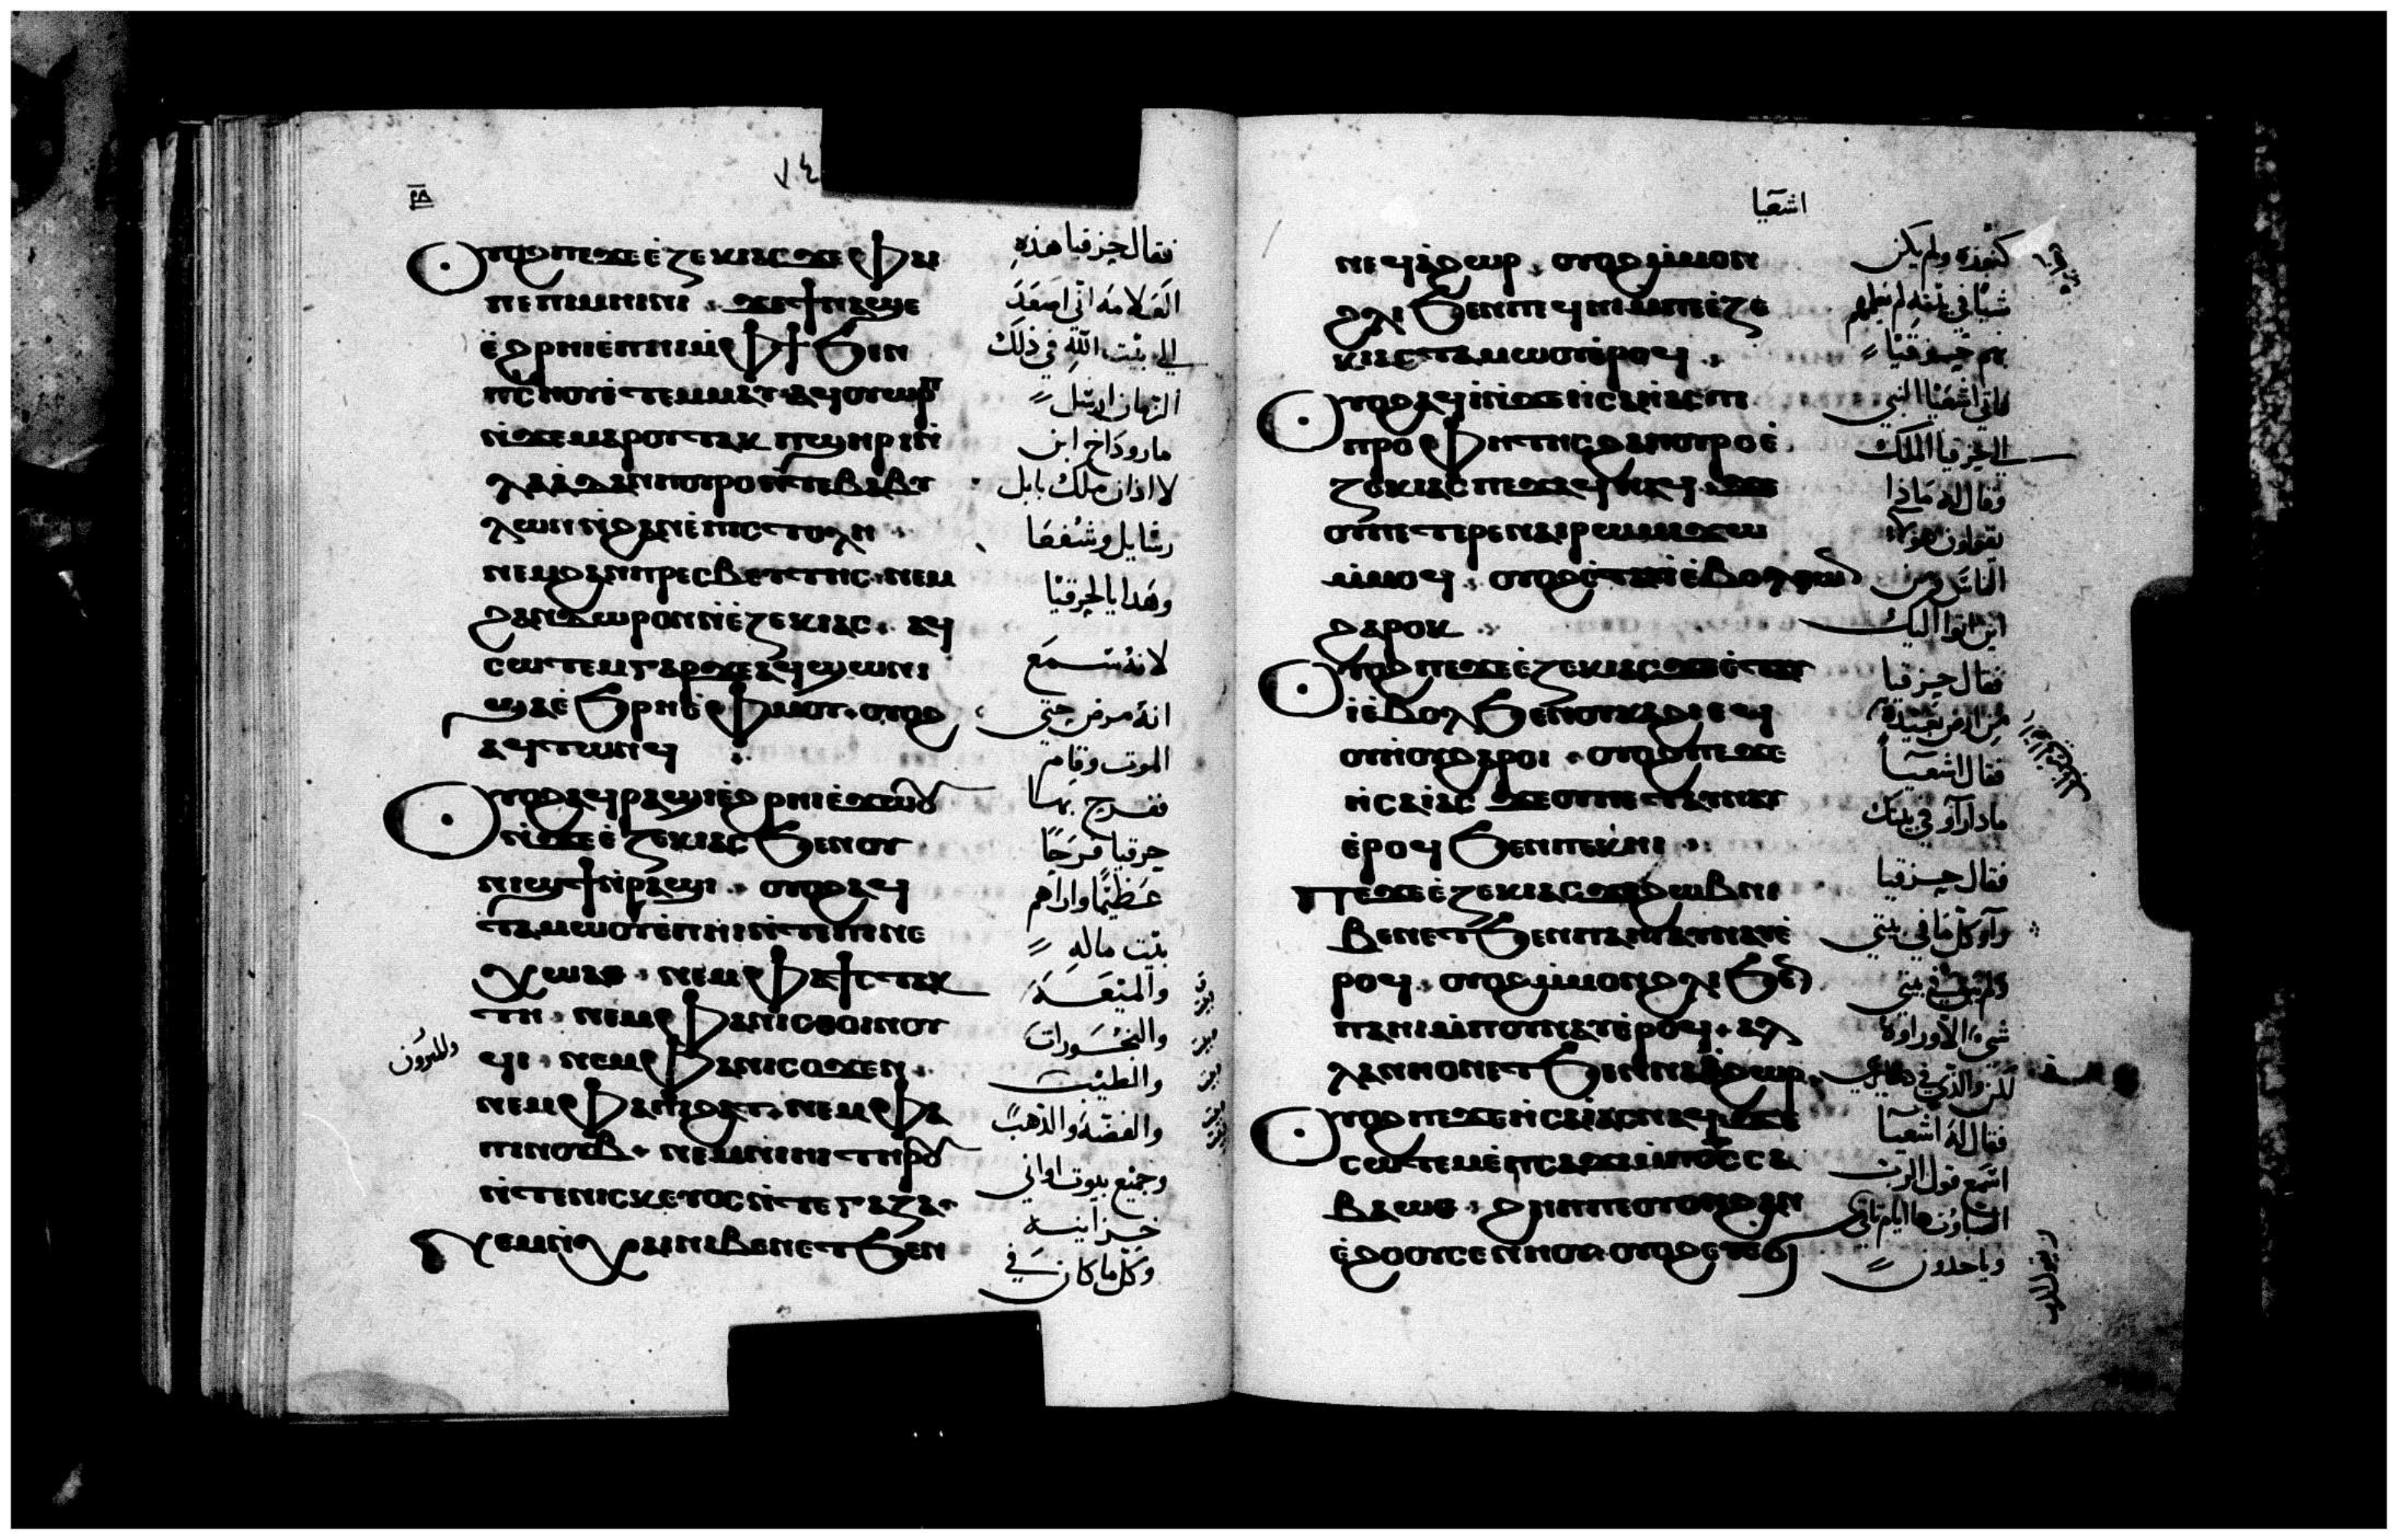 ٧٤
ⲟⲩⲟϩ ⲡⲉϫⲉ ⲉ̀ⲍⲉⲕⲓⲁⲥ ϫⲉ ⲫⲁⲓ
ⲡⲉ ⲡⲓⲙⲏⲓⲛⲓ . ϫⲉ ϯⲛⲁϣⲉ
ⲉ̀ϩⲣⲏⲓ ⲉ̀ⲡⲏⲓ ⲙ̀ⲫϯ ϧⲉⲛ
ⲡⲓⲥⲏⲟⲩ ⲉ̀ⲧⲉⲙⲙⲁⲩ ⲁϥⲟⲩⲱⲣⲡ
ⲛ̀ϫⲉ ⲙⲁⲣⲟⲩⲧⲁⲕ ⲡϣⲏⲣⲓ ⲛ̀
ⲗⲁⲁ̀ⲇⲁⲛ ⲡⲟⲩⲣⲟ ⲛ̀ⲧⲉ ⲃⲁⲃⲩ
ⲗⲱⲛ ⲛ̀ϩⲁⲛⲉ̀ⲡⲓⲥⲧⲟⲗⲏ .
ⲛⲉⲙ ϩⲁⲛⲡⲣⲉⲥⲃⲉⲩⲧⲏⲥ . ⲛⲉⲙ
ϩⲁⲛⲇⲱⲣⲟⲛ ⲛ̀ⲉ̀ⲍⲉⲕⲓⲁⲥ . ⲁϥ
ⲥⲱⲧⲉⲙ ⲅⲁⲣ ϫⲉ ⲁϥϣⲱⲛⲓ
ϣⲁ ⲉ̀ϧⲣⲏⲓ ⲉ̀ⲫⲙⲟⲩ . ⲟⲩⲟϩ
ⲁϥⲧⲱⲛϥ
ⲟⲩⲟϩ ⲁϥⲣⲁϣⲓ ⲉ̀ϩⲣⲏⲓ ⲉ̀ϫⲱⲟⲩ
ⲛ̀ϫⲉ ⲉ̀ⲍⲉⲕⲓⲁⲥ ϧⲉⲛ ⲟⲩ
ⲛⲓϣϯ ⲛ̀ⲣⲁϣⲓ . ⲟⲩⲟϩ ⲁϥ
ⲧⲁⲙⲱⲟⲩ ⲉ̀ⲡⲏⲓ ⲛ̀ⲧⲉ ⲡⲓⲛⲉ
ⲭⲱⲑⲁ . ⲛⲉⲙ ⲫⲁϯⲥⲧⲁⲕ
ⲧⲏ . ⲛⲉⲙ ⲫⲁⲛⲓⲥⲑⲟⲓⲛⲟⲩ
ϥⲓ . ⲛⲉⲙ ⲫⲁⲛⲓⲥⲟϫⲉⲛ .
ⲛⲉⲙ ⲫⲁⲡⲓϩⲁⲧ . ⲛⲉⲙ ⲫⲁ
ⲡⲓⲛⲟⲩⲃ . ⲛⲉⲙ ⲛⲓⲏⲓ ⲧⲏⲣⲟⲩ
ⲛ̀ⲧⲉ ⲛⲓⲥⲕⲉⲩⲟⲥ ⲛ̀ⲧⲉ ⲅⲁⲍⲁ .
ⲛⲉⲙ ⲛ̀ⲭⲁⲓ ⲛⲓⲃⲉⲛ ⲉⲧ ϧⲉⲛ
فقال حزقيا هذه
العلامه انى اصعد
الى بيت الله في ذلك
الزمان ارسل
ماروداخ ابن
لاادان ملك بابل
رسايل وشفعا
وهدايا لحزقيا
لانه سمع
انه مرض حتى
الموت وقام
ففرح بها
حزقيا فرحا
عظيما واراهم
بيت ماله
والميعه
والبخورات
والطيب
والفضه والذهب
وجميع بيوت اواني
خزاينه
وكل ما كان في
اشعيا
ⲛⲉϥⲁ̀ϩⲱⲣ . ⲟⲩⲟϩ ⲙ̀ⲙⲟⲛ
ϩⲗⲓ ϧⲉⲛ ⲡⲉϥⲏⲓ ⲙ̀ⲡⲉ ⲉ̀ⲍⲉ
ⲕⲓⲁⲥ ⲧⲁⲙⲱⲟⲩ ⲉ̀ⲣⲟϥ .
ⲟⲩⲟϩ ⲁϥⲓ̀ ⲛ̀ϫⲉ ⲏⲥⲁⲏⲁⲥ ⲡⲓ
ⲡⲣⲟⲫⲏⲧⲏⲥ ϩⲁ ⲡⲟⲩⲣⲟ ⲉ̀
ⲍⲉⲕⲓⲁⲥ ⲡⲉϫⲁϥ ⲛⲁϥ . ϫⲉ
ⲟⲩ ⲡⲉⲧⲉⲣⲉ ⲛⲁⲓⲣⲱⲙⲓ ϫⲱ
ⲙ̀ⲙⲟϥ . ⲟⲩⲟϩ ⲉ̀ⲧⲁⲩⲓ̀ ⲉ̀ⲃⲟⲗ ⲑⲱⲛ
ϩⲁⲣⲟⲕ
ⲟⲩⲟϩ ⲡⲉϫⲉ ⲉ̀ⲍⲉⲕⲓⲁⲥ ϫⲉ ⲉ̀ⲧⲁⲩ
ⲓ̀ ⲉ̀ⲃⲟⲗ ϧⲉⲛ ⲟⲩⲕⲁϩⲓ ⲉϥ
ⲟⲩⲏⲟⲩ ϩⲁⲣⲟⲓ . ⲟⲩⲟϩ ⲡⲉϫⲉ
ⲏⲥⲁⲓⲁⲥ ϫⲉ ⲟⲩ ⲡⲉⲧⲁⲩⲛⲁⲩ
ⲉ̀ⲣⲟϥ ϧⲉⲛ ⲡⲉⲕⲏⲓ .
ⲡⲉϫⲉ ⲉ̀ⲍⲉⲕⲓⲁⲥ ϫⲉ ϩⲱⲃ ⲛⲓ
ⲃⲉⲛ ⲉⲧ ϧⲉⲛ ⲡⲁⲏⲓ ⲁⲩⲛⲁⲩ ⲉ̀
ⲣⲟϥ . ⲟⲩⲟϩ ⲙ̀ⲙⲟⲛ ϩⲗⲓ ϧⲉⲛ
ⲡⲁⲏⲓ ⲙ̀ⲡⲟⲩⲛⲁⲩ ⲉ̀ⲣⲟϥ . ⲁⲗ
ⲗⲁ ⲛⲏ ⲟⲛ ⲉⲧ ϧⲉⲛ ⲛⲁⲁ̀ϩⲱⲣ .
ⲟⲩⲟϩ ⲡⲉϫⲉ ⲏⲥⲁⲓⲁⲥ ⲛⲁϥ ϫⲉ
ⲥⲱⲧⲉⲙ ⲉ̀ⲡⲥⲁϫⲓ ⲙ̀ⲡⲟ̅ⲥ̅ ⲥⲁ
ⲃⲁⲱⲑ . ϩⲏⲡⲡⲉ ⲟⲩⲟⲛ ϩⲁⲛ
ⲉ̀ϩⲟⲟⲩ ⲥⲉⲛⲏⲟⲩ . ⲟⲩⲟϩ ⲉⲩⲉ̀ϭⲓ
كنوزه ولم يكن
شيا في بيته لم يعلمهم
به حزقيا
فاتى اشعيا النبي
الى حزقيا الملك
وقال له ماذا
تقولون هولا
الناس ومن
اين اتوا اليك
فقال حزقيا
من ارض بعيده
فقال اشعيا
ماذا راوا في بيتك
فقال حزقيا
راوا كل ما في بيتي
شي الا وراوه
فقال له اشعيا
اسمع قول الرب
وياخذون